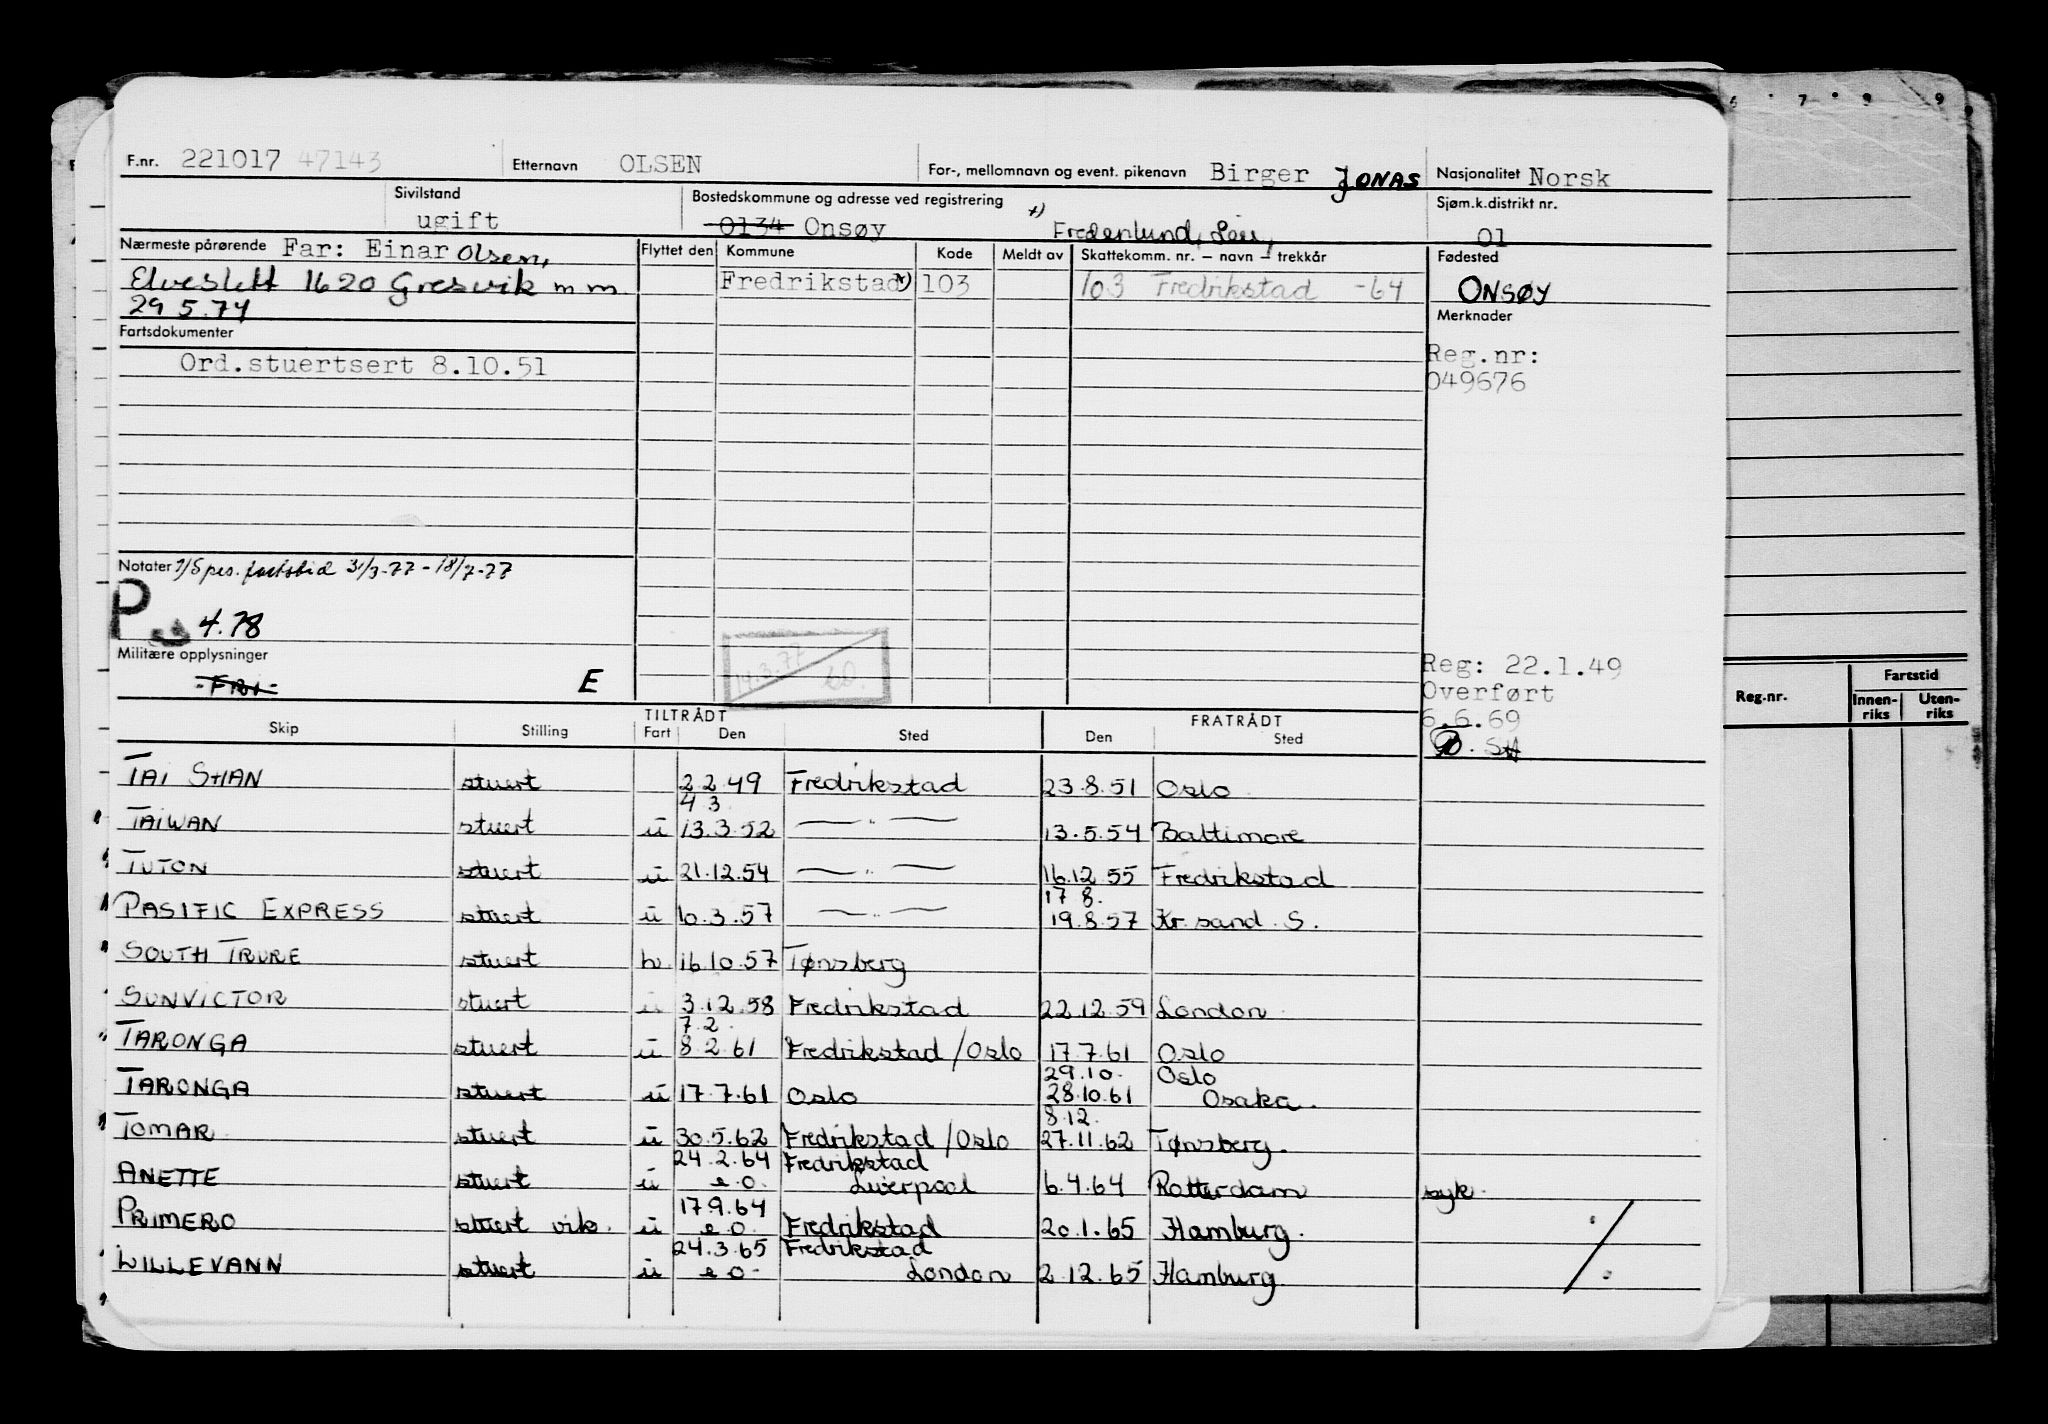 F.nr. 221017 47143 Etternavn OLSEN For-, mellomnavn og event. pikenavn Birger JONAS Nasjonalitet Norsk
Sivilstand ugift Bostedskommune og adresse ved registrering 0134 Onsøy x) Fredenlund, Sjøm.k.distrikt nr. 01
Nærmeste pårørende Far: Einar Olsen, Flyttet den Kommune Kode Meldt av Skattekomm. nr. – navn – trekkår Fødested
Elveslett 1620 Gresvik m m Fredrikstad x) 103 103 Fredrikstad -64 ONSØY
29 5.74
Fartsdokumenter Merknader
Ord.stuertsert 8.10.51 Reg.nr:
049676
Notater Spes. fartstid 31/3-77-18/7-77
P. 4.78
Militære opplysninger 14.3.77
-FRI- E
Reg: 22.1.49
Overført
6.6.69
TILTRÅDT FRATRÅDT
Skip Stilling Fart Den Sted Den Sted
TAI SHAN stuert 2 2 49 Fredrikstad 23.8.51 Oslo
4 3
TAIWAN stuert u 13.3.52 — " — 13.5.54 Baltimore
TUTON stuert u 21.12.54 — " — 16.12 55 Fredrikstad
17 8.
PASIFIC EXPRESS stuert u 10.3.57 — " — 19.8.57 Kr. sand. S.
SOUTH TRURE stuert h. 16.10.57 Tønsberg
SUNVICTOR stuert u 3.12.58 Fredrikstad 22.12.59 London
7.2.
TARONGA stuert u 8.2.61 Fredrikstad/Oslo 17.7.61 Oslo
29.10. Oslo
TARONGA stuert u 17.7.61 Oslo 28.10.61 Osaka.
8.12.
TOMAR stuert u 30.5.62 Fredrikstad/Oslo 27.11.62 Tønsberg.
24.2.64 Fredrikstad
ANETTE stuert u e.o. Liverpool 6.4.64 Rotterdam syk.
17.9.64
PRIMERO stuert vik. u e.o. Fredrikstad 20.1.65 Hamburg.
24.3.65 Fredrikstad
LILLEVANN stuert u e o- London 2.12.65 Hamburg
Reg.nr. Fartstid
Innen-riks Uten-riks
7 8 9